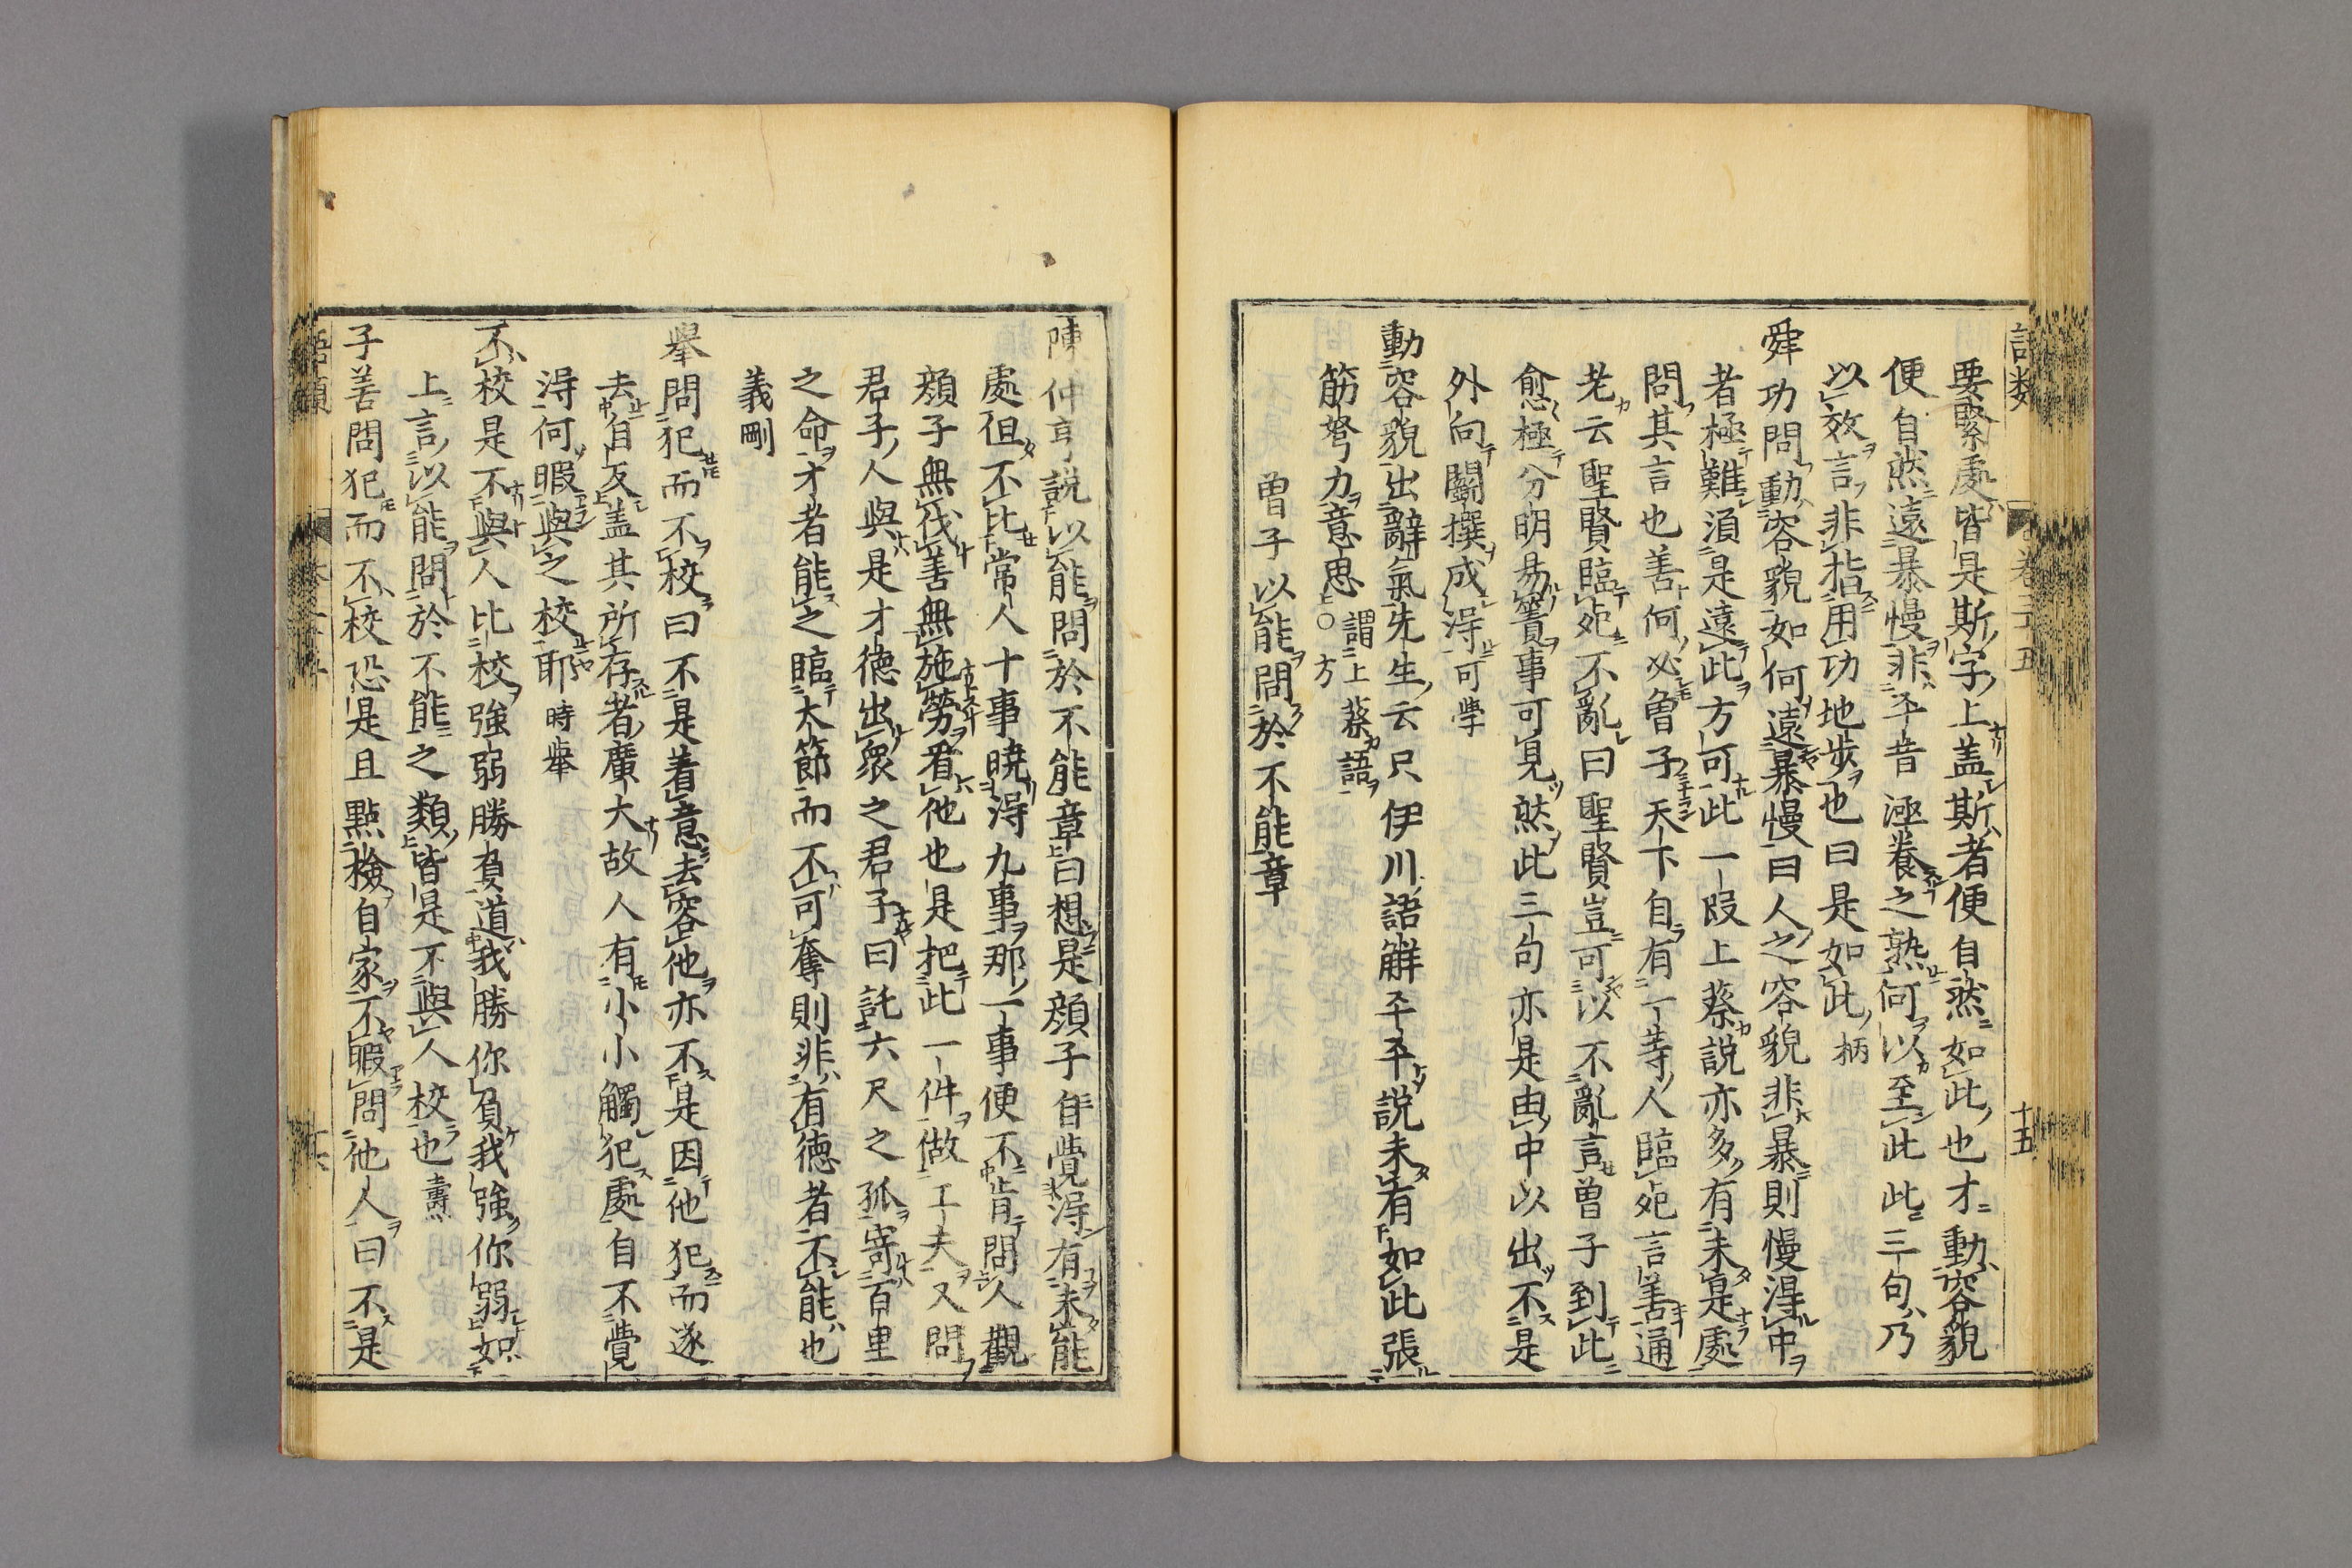 要緊處皆是斯字上盖斯者便自然如此也才動容貌
便自然遠暴慢非平昔涵養之熟何以至此此三句乃
以效言非指用功地步也曰是如此柄
舜功問動容貌如何遠暴慢曰人之容貌非暴則慢得中
者極難湏是遠此方可此一段上蔡說亦多有未是處
問其言也善何必曾子天下自有一等人臨死言善通
老云聖賢臨死不亂曰聖賢豈可以不亂言曾子到此
愈極分明易簀事可見然此三句亦是由中以出不是
外向鬭撰成得可學
動容貌出辭氣先生云只伊川語解平平說未有如此張
筋弩力意思謂上蔡語〇方
曾子以能問於不能章
陳仲亨說以能問於不能章曰想是顔子自覺得有未能
處但不比常人十事曉得九事那一事便不肯問人觀
顔子無伐善無施勞看他也是把此一件做工夫又問
君子人與是才德出衆之君子曰託六尺之孤寄百里
之命才者能之臨大節而不可奪則非有德者不能也
義剛
舉問犯而不校曰不是着意去容他亦不是因他犯而遂
去自反盖其所存者廣大故人有小小觸犯處自不覺
得何暇與之校耶時舉
不校是不與人比校強弱勝負道我勝你負我強你弱如
上言以能問於不能之類皆是不與人校也燾
子善問犯而不校恐是且點檢自家不暇問他人曰不是